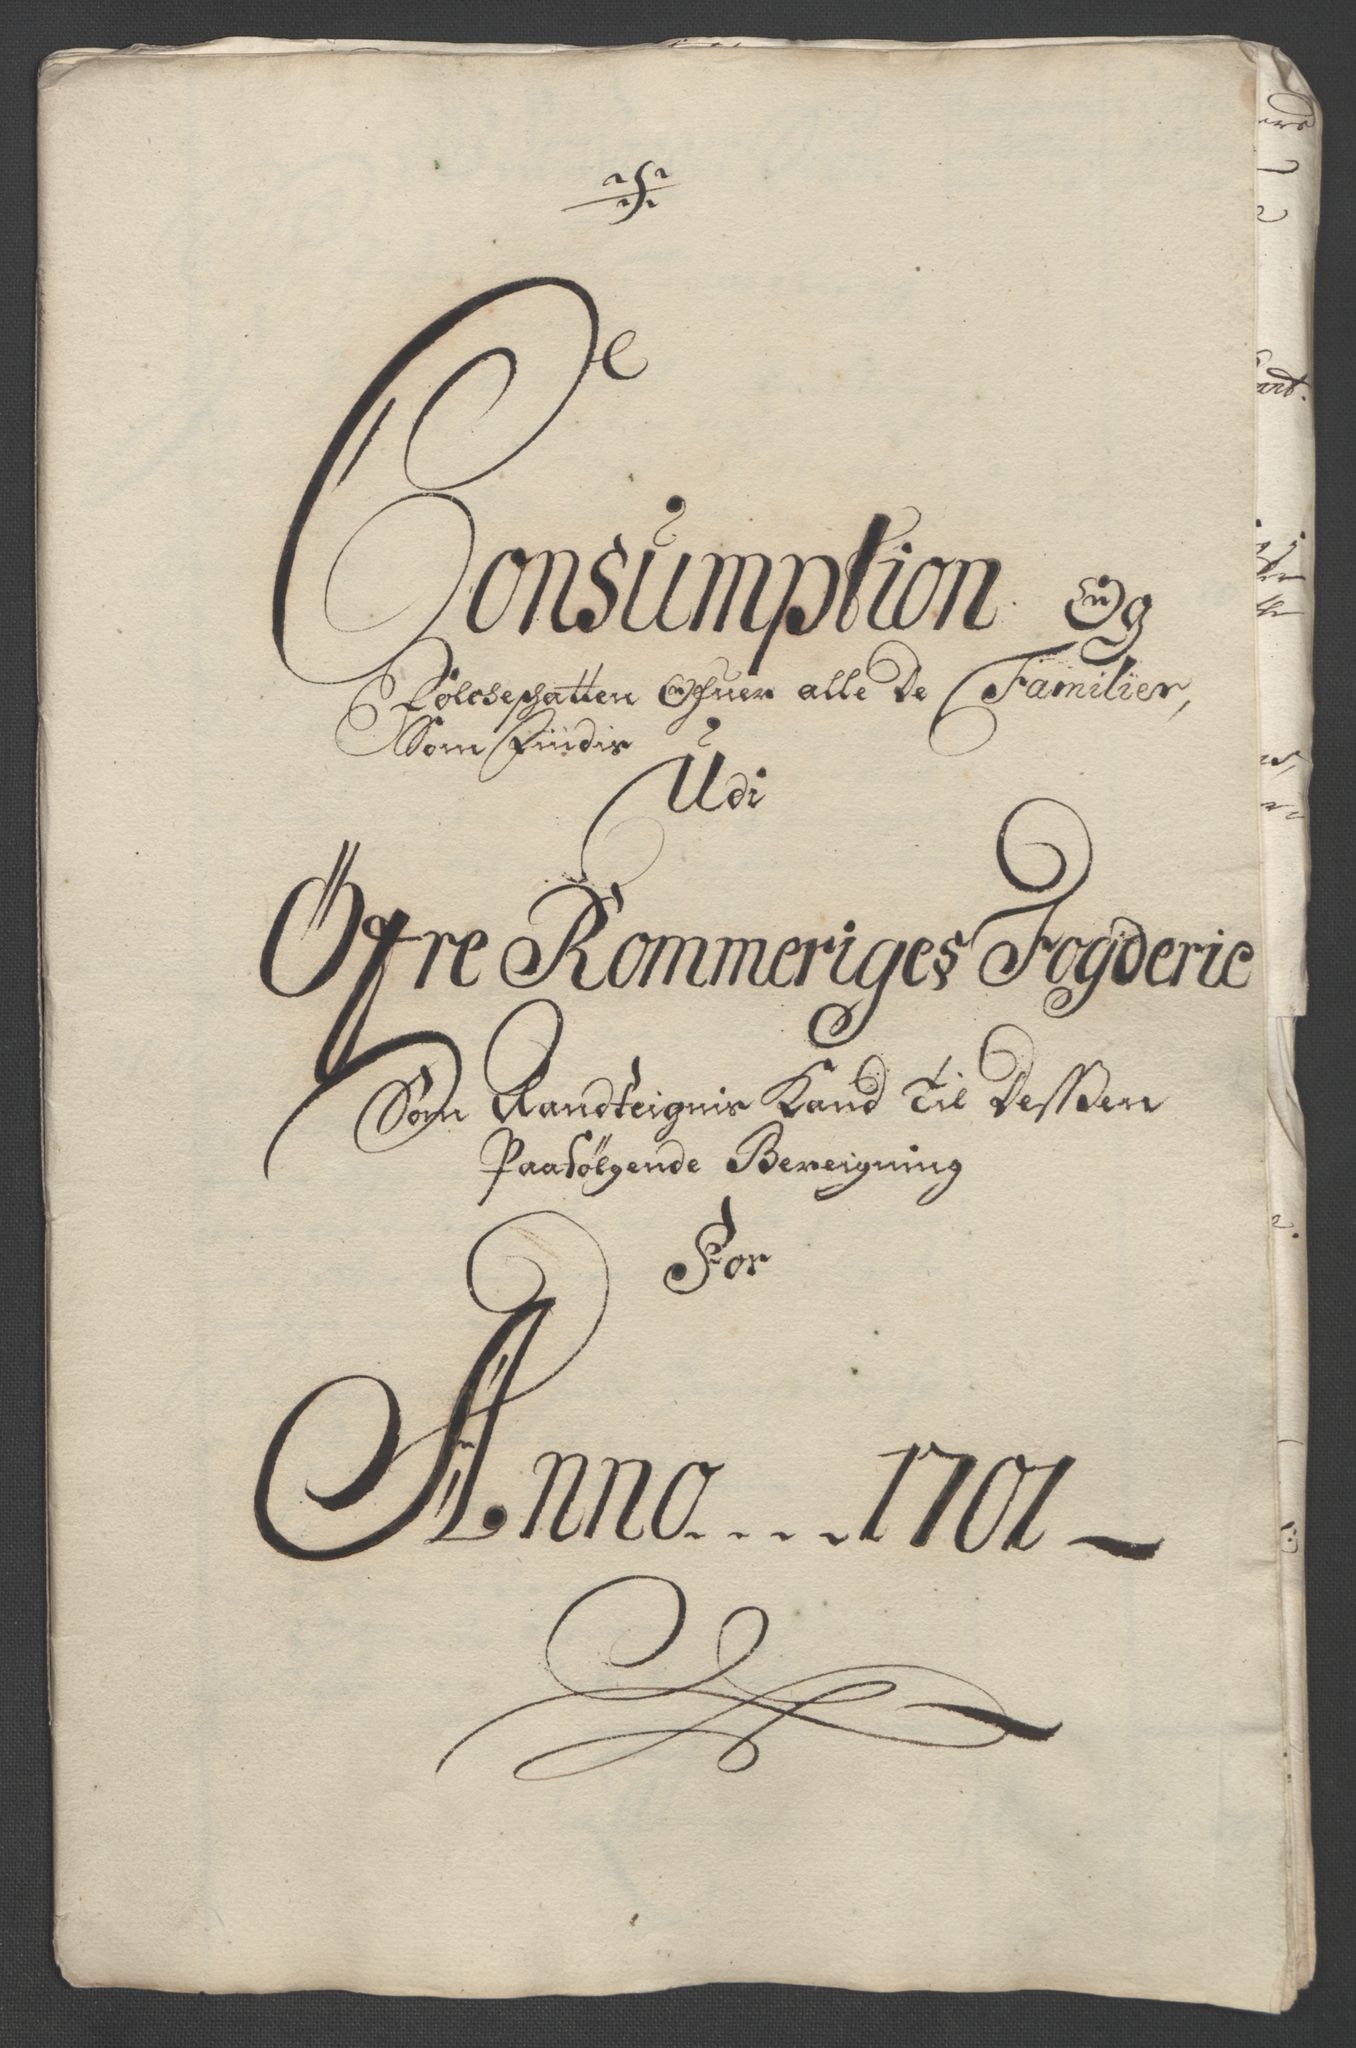 Consumption Og
Folcheschatten Ofuer alle de Familier,
Som Findis
Udi
Öfre Rommeriges Fogderie
Som Randteignis Kand Til Dessen
Paafölgende Bereigning
For
Anno....1701